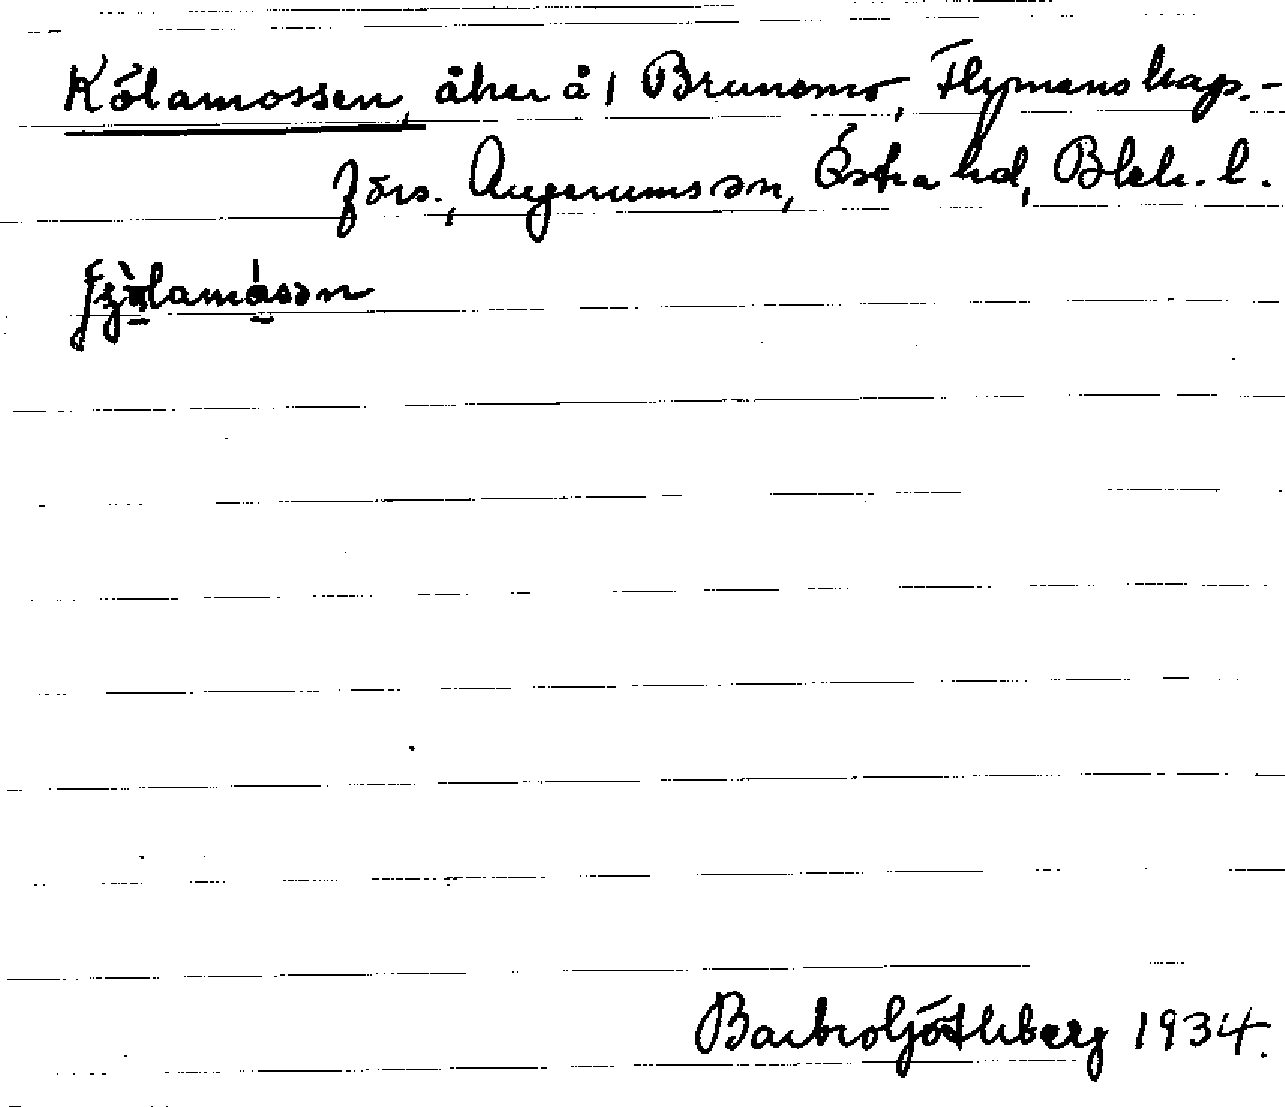 Kölamossen, åker å 1 Brunsmo, Flymens kap.-
förs., Augerums sn, Östra hd, Blek. l.
Barbro Göthberg 1934.